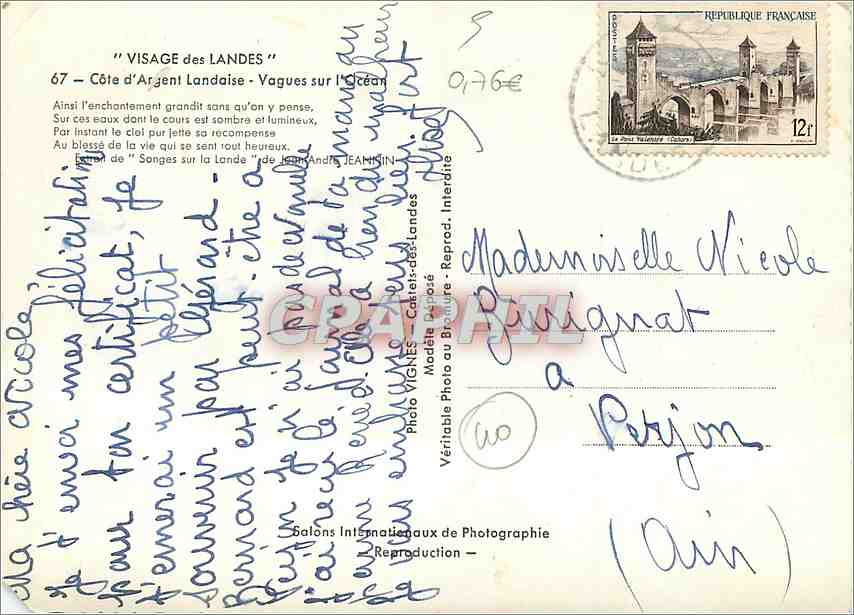 " VISAGE des LANDES "
67 — Côte d'Argent Landaise - Vagues sur l'Océan
Ainsi l'enchantement grandit sans qu'on y pense,
Sur ces eaux dont le cours est sombre et lumineux,
Par instant le ciel pur jette sa récompense
Au blessé de la vie qui se sent tout heureux.
Extrait de " Songes sur la Lande " de Jean-André JEANNIN
9
0,76€
REPUBLIQUE FRANÇAISE
POSTES
Le Pont Valentré (Cahors)
12f
Ma chère Nicole,
Je t'envoi mes félicitations
pour ton certificat, je
t'emerai un petit
souvenir par Gérard -
Bernard est peut-être a
je n'ai pas de nouvelle
j'ai reçu le journal de ta maman
je vous embrasse tous bien fort
Photo VIGNES — Castets-des-Landes
Modèle Déposé
Véritable Photo au Bromure - Reprod. Interdite
Mademoiselle Nicole
a
(Ain)
40
Salons Internationaux de Photographie
— Reproduction —
CPAPHIL